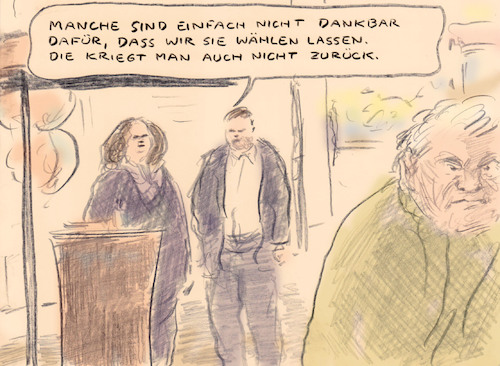 MANCHE SIND EINFACH NICHT DANKBAR
DAFÜR, DASS WIR SIE WÄHLEN LASSEN.
DIE KRIEGT MAN AUCH NICHT ZURÜCK.